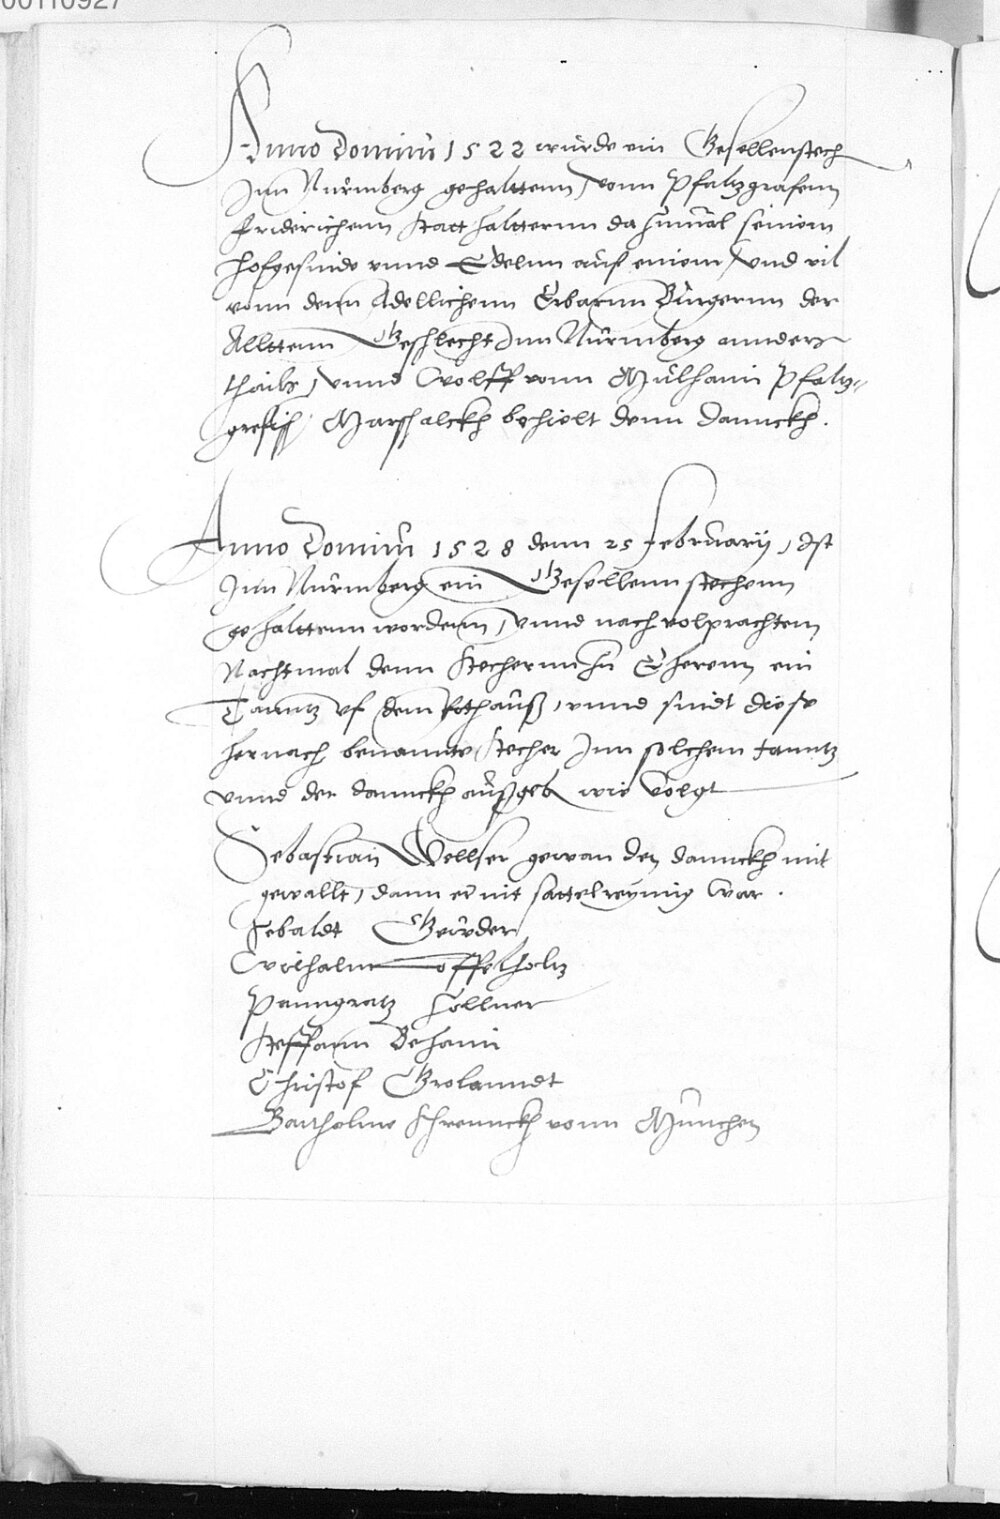 00110927
Anno Dominj 1522 wurde ein Gesellenstech
Jnn Nurmberg gehalttenn, vonn Pfaltzgrafenn
Friderichenn statthaltterenn dazumal seinem
hofgesinde vnnd Edelnn auf einem, vnd vil
vonn denn Adellichenn Erbarnn Burgernn der
Alltenn Geschlecht Jnn Nurmberg annders
thails, vnnd Wolff vonn Mulhaim Pfaltz-
grefisch Marschalckh behielt denn Dannckh.
Anno Dominj 1528 denn 25 Februarij, Ist
Jnn Nurmberg ein Gesellenn stechenn
gehalttenn wordenn, vnnd nach volprachtem
Nachtmal denn stechernn zu Eherenn ein
Tanntz vf dem Rothauß, vnnd sindt diese
hernach benannte stecher Jnn solchem tanntz
vnnd der dannckh außgeb wie volgt
Sebastian Wellser gewan den dannckh mit
gewallt, dann er nit sattelreumig war.
Sebaldt Geuder
Wilhalm Loffelholtz
Panngratz Zollner
Steffann Behaim
Christof Grolanndt
Bartholme Schrennckh vonn Munchen